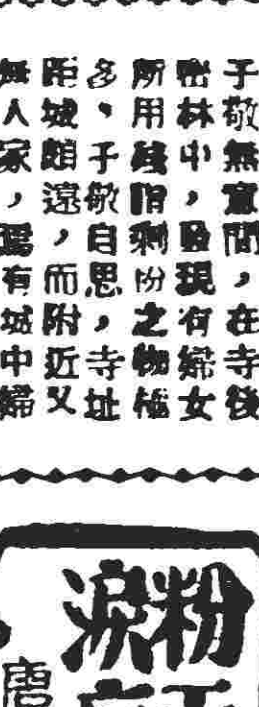 于敬無意間，在寺後
密林中，發現有婦女
所用錢脂剩粉之物極
多，于敬自思，寺址
距城頗遠，而附近又
無人家，焉有城中婦
粉
淚
唐